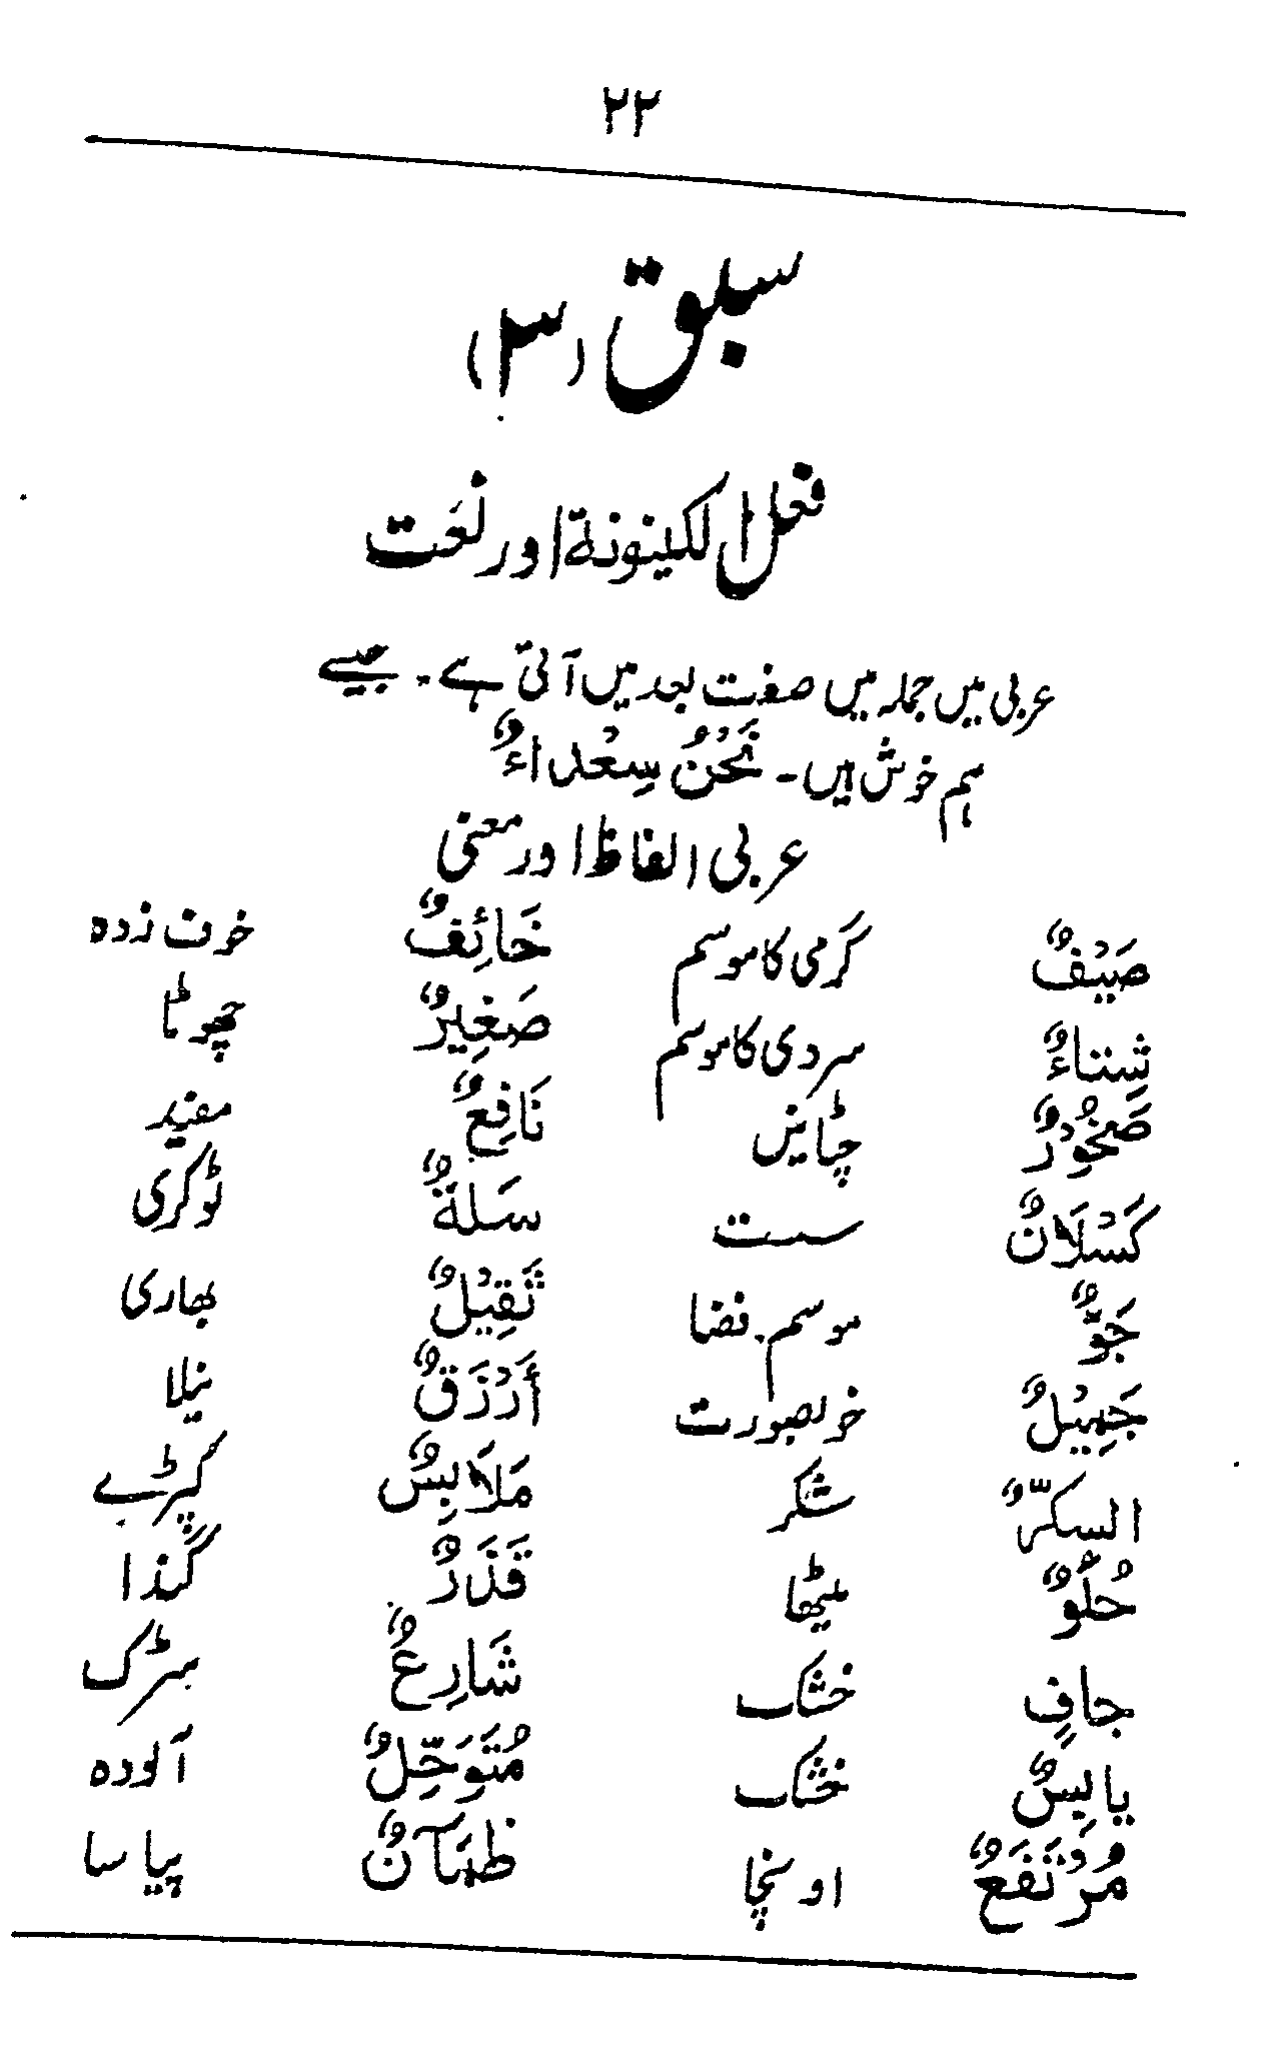 ۲۲
سبق (۳)
فعل الكينونة اور نَعَت
عربی میں جملہ میں صفت بعد میں آتی ہے۔ جیسے
ہم خوش ہیں۔ نَحْنُ سِعْداءٌ
عربی الفاظ اور معنی
صَيْفٌ گرمی کا موسم خَائِفٌ خوف زدہ
شِتاءٌ سردی کا موسم صَغِيرٌ چھوٹا
صَخُوْرٌ چٹانیں نَافِعٌ مفید
كَسْلَانٌ سست سَلةٌ ٹوکری
جَوٌّ موسم۔ فضا ثَقِيْلٌ بھاری
جَمِيْلٌ خوبصورت أَرْزَقٌ نیلا
السكرٌّ شکر مَلَابِسٌ کپڑے
حُلْوٌ میٹھا قَذَرٌ گندا
جافٍ خشک شَارِعٌ سڑک
يابِسٌ خشک مُتَوَحِّلٌ آلودہ
مُرْتَفَعٌ اونچا ظَمَآنٌ پیاسا